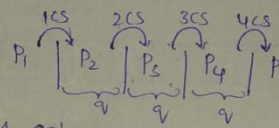 1CS 2CS 3CS 4CS
P1 P2 P3 P4 P
q q q